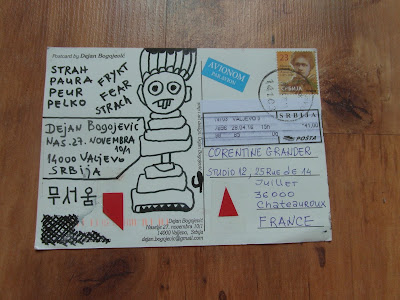 Postcard by Dejan Bogojević
STRAH
PAURA
PEUR
PELKO
FRYKT
FEAR
STRACH
DEJAN BOGOJEVIĆ
NAS. 27. NOVEMBRA
10/1
14000 VALJEVO
SRBIJA
무서움
Dejan Bogojević
Naselje 27. novembra 10/1
14000 Valjevo, Srbija
dejan.bogojevic@gmail.com
AVIONOM
PAR AVION
23
СРБИЈА
SRBIJA
VALJEVO
POSTA
CORENTINE GRANDER
STUDIO 12, 25 RUE DE 14
JUILLET
36000
CHATEAUROUX
FRANCE